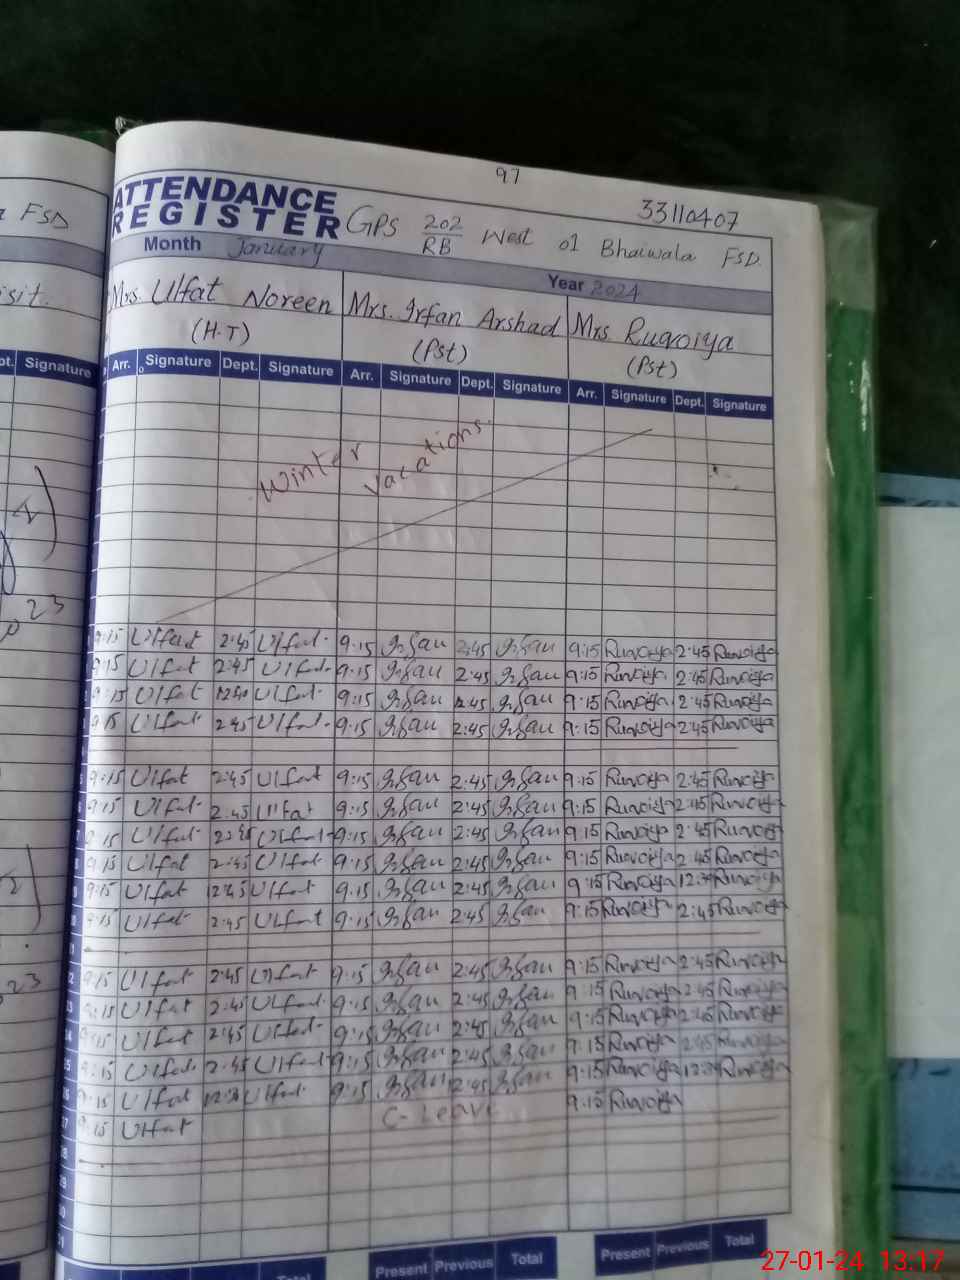 97
33110407
a FSD
ATTENDANCE
REGISTER GPS 202/RB West 01 Bhaiwala FSD.
Month January Year 2024
isit.
Mrs. Ulfat Noreen Mrs. Irfan Arshad Mrs. Ruqoiya
(H.T) (Pst) (Pst)
pt. Signature Arr. Signature Dept. Signature Arr. Signature Dept. Signature Arr. Signature Dept. Signature
Winter Vacations.
9:15 Ulfat 2:45 Ulfat 9:15 Irfan 2:45 Irfan 9:15 Ruqoiya 2:45 Ruqoiya
9:15 Ulfat 2:45 Ulfat 9:15 Irfan 2:45 Irfan 9:15 Ruqoiya 2:45 Ruqoiya
9:15 Ulfat Ulfat 9:15 Irfan Irfan 9:15 Ruqoiya 2:45 Ruqoiya
9:15 Ulfat 2:45 Ulfat 9:15 Irfan 2:45 Irfan 9:15 Ruqoiya 2:45 Ruqoiya
9:15 Ulfat 2:45 Ulfat 9:15 Irfan 2:45 Irfan 9:15 Ruqoiya 2:45 Ruqoiya
9:15 Ulfat 2:45 Ulfat 9:15 Irfan 2:45 Irfan 9:15 Ruqoiya 2:45 Ruqoiya
9:15 Ulfat Ulfat 9:15 Irfan 2:45 Irfan 9:15 Ruqoiya 2:45 Ruqoiya
9:15 Ulfat 2:45 Ulfat 9:15 Irfan 2:45 Irfan 9:15 Ruqoiya 2:45 Ruqoiya
9:15 Ulfat 12:45 Ulfat 9:15 Irfan 2:45 Irfan 9:15 Ruqoiya 12:30 Ruqoiya
9:15 Ulfat 2:45 Ulfat 9:15 Irfan 2:45 Irfan 9:15 Ruqoiya 2:45 Ruqoiya
9:15 Ulfat 2:45 Ulfat 9:15 Irfan 2:45 Irfan 9:15 Ruqoiya 2:45 Ruqoiya
9:15 Ulfat 2:45 Ulfat 9:15 Irfan 2:45 Irfan 9:15 Ruqoiya 2:45 Ruqoiya
9:15 Ulfat 2:45 Ulfat 9:15 Irfan 2:45 Irfan 9:15 Ruqoiya 2:45 Ruqoiya
9:15 Ulfat 2:45 Ulfat 9:15 Irfan 2:45 Irfan 9:15 Ruqoiya 2:45 Ruqoiya
9:15 Ulfat 12:30 Ulfat 9:15 Irfan 2:45 Irfan 9:15 Ruqoiya 12:30 Ruqoiya
27 9:15 Ulfat C-Leave 9:15 Ruqoiya
28
29
30
31
Total Present Previous Total Present Previous Total
27-01-24 13:17